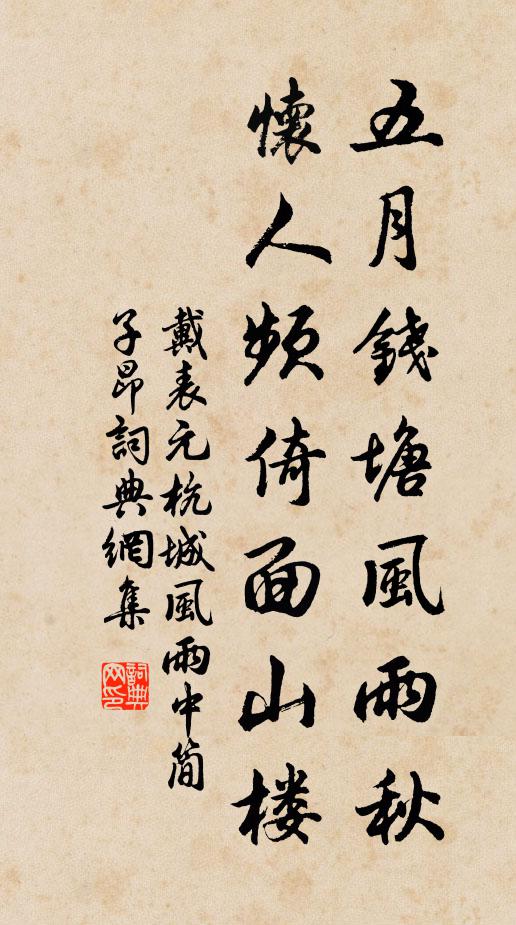 五月錢塘風雨秋
懷人頻倚面山楼
戴表元杭城風雨中简
子昂詞典網集
詞典网印